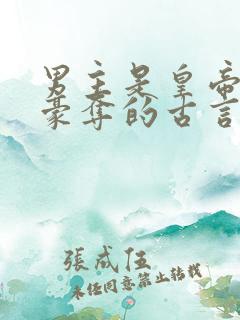 男主是皇帝
豪夺的古言
張成伍
未经同意禁止转载